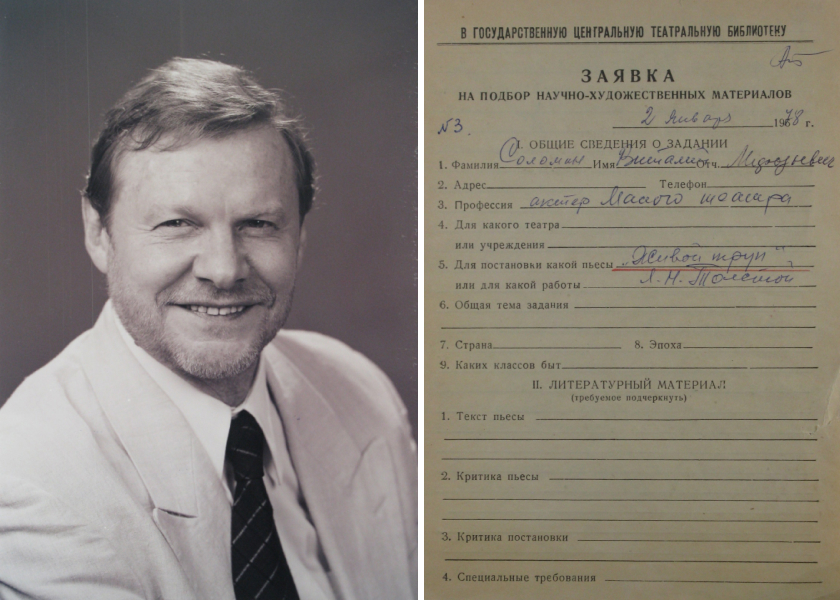 В ГОСУДАРСТВЕННУЮ ЦЕНТРАЛЬНУЮ ТЕАТРАЛЬНУЮ БИБЛИОТЕКУ
ЗАЯВКА
НА ПОДБОР НАУЧНО-ХУДОЖЕСТВЕННЫХ МАТЕРИАЛОВ
№3. 2 января 1978 г.
I. ОБЩИЕ СВЕДЕНИЯ О ЗАДАНИИ
1. Фамилия Соломин Имя Виталий Отч.
2. Адрес Телефон
3. Профессия актер Малого театра
4. Для какого театра
или учреждения
5. Для постановки какой пьесы „Живой труп"
или для какой работы Л. Н. Толстой
6. Общая тема задания
7. Страна 8. Эпоха
9. Каких классов быт
II. ЛИТЕРАТУРНЫЙ МАТЕРИАЛ
(требуемое подчеркнуть)
1. Текст пьесы
2. Критика пьесы
3. Критика постановки
4. Специальные требования